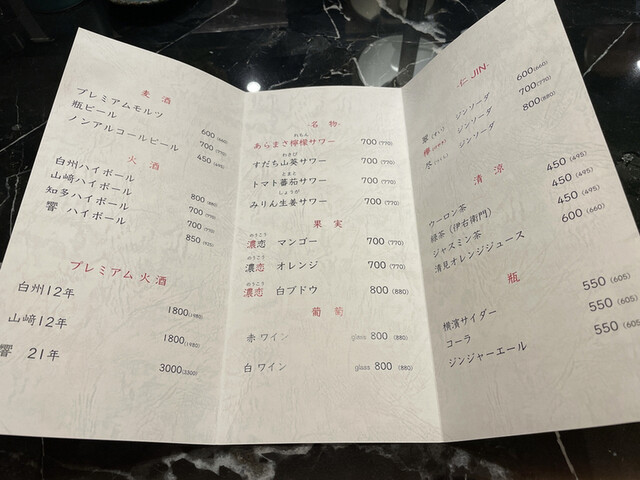 麦酒
プレミアムモルツ 600(660)
瓶ビール 700(770)
ノンアルコールビール 450(495)
火酒
白州ハイボール 800(880)
山﨑ハイボール 700(770)
知多ハイボール 700(770)
響 ハイボール 850(935)
プレミアム火酒
白州12年 1800(1980)
山﨑12年 1800(1980)
響 21年 3000(3300)
-名物-
れもん
あらまさ檸檬サワー 700(770)
わさび
すだち山葵サワー 700(770)
とまと
トマト蕃茄サワー 700(770)
しょうが
みりん生姜サワー 700(770)
果実
のうこう
濃恋 マンゴー 700(770)
のうこう
濃恋 オレンジ 700(770)
のうこう
濃恋 白ブドウ 800(880)
葡萄
赤ワイン glass 800(880)
白ワイン glass 800(880)
-仁 JIN-
翠(すい) ジンソーダ 600(660)
ジンソーダ 700(770)
ジンソーダ 800(880)
清涼
ウーロン茶 450(495)
緑茶(伊右衛門) 450(495)
ジャスミン茶 450(495)
清見オレンジジュース 600(660)
瓶
横濱サイダー 550(605)
コーラ 550(605)
ジンジャーエール 550(605)